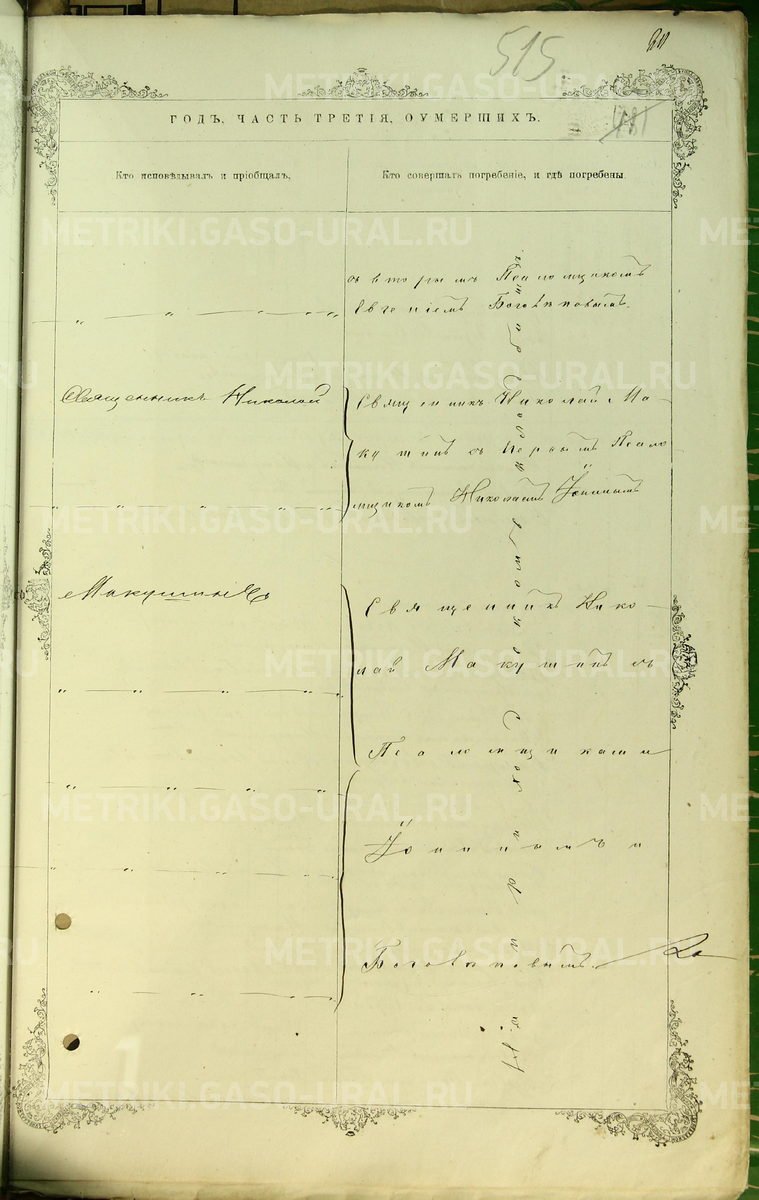 515
ГОДЪ, ЧАСТЬ ТРЕТІЯ, ОУМЕРШИХЪ.
Кто исповѣдывалъ и пріобщалъ,
Кто совершалъ погребеніе, и гдѣ погребены.
со вторымъ Псаломщикомъ
Евгеніемъ
Священникъ Николай
Священникъ Николай Ма-
кушинъ съ Первымъ Псало
мщикомъ Николаемъ
Макушинъ
Священникъ Нико-
лай Макушинъ съ
Псаломщиками
и
На приходскомъ кладбищѣ.
METRIKI.GASO-URAL.RU